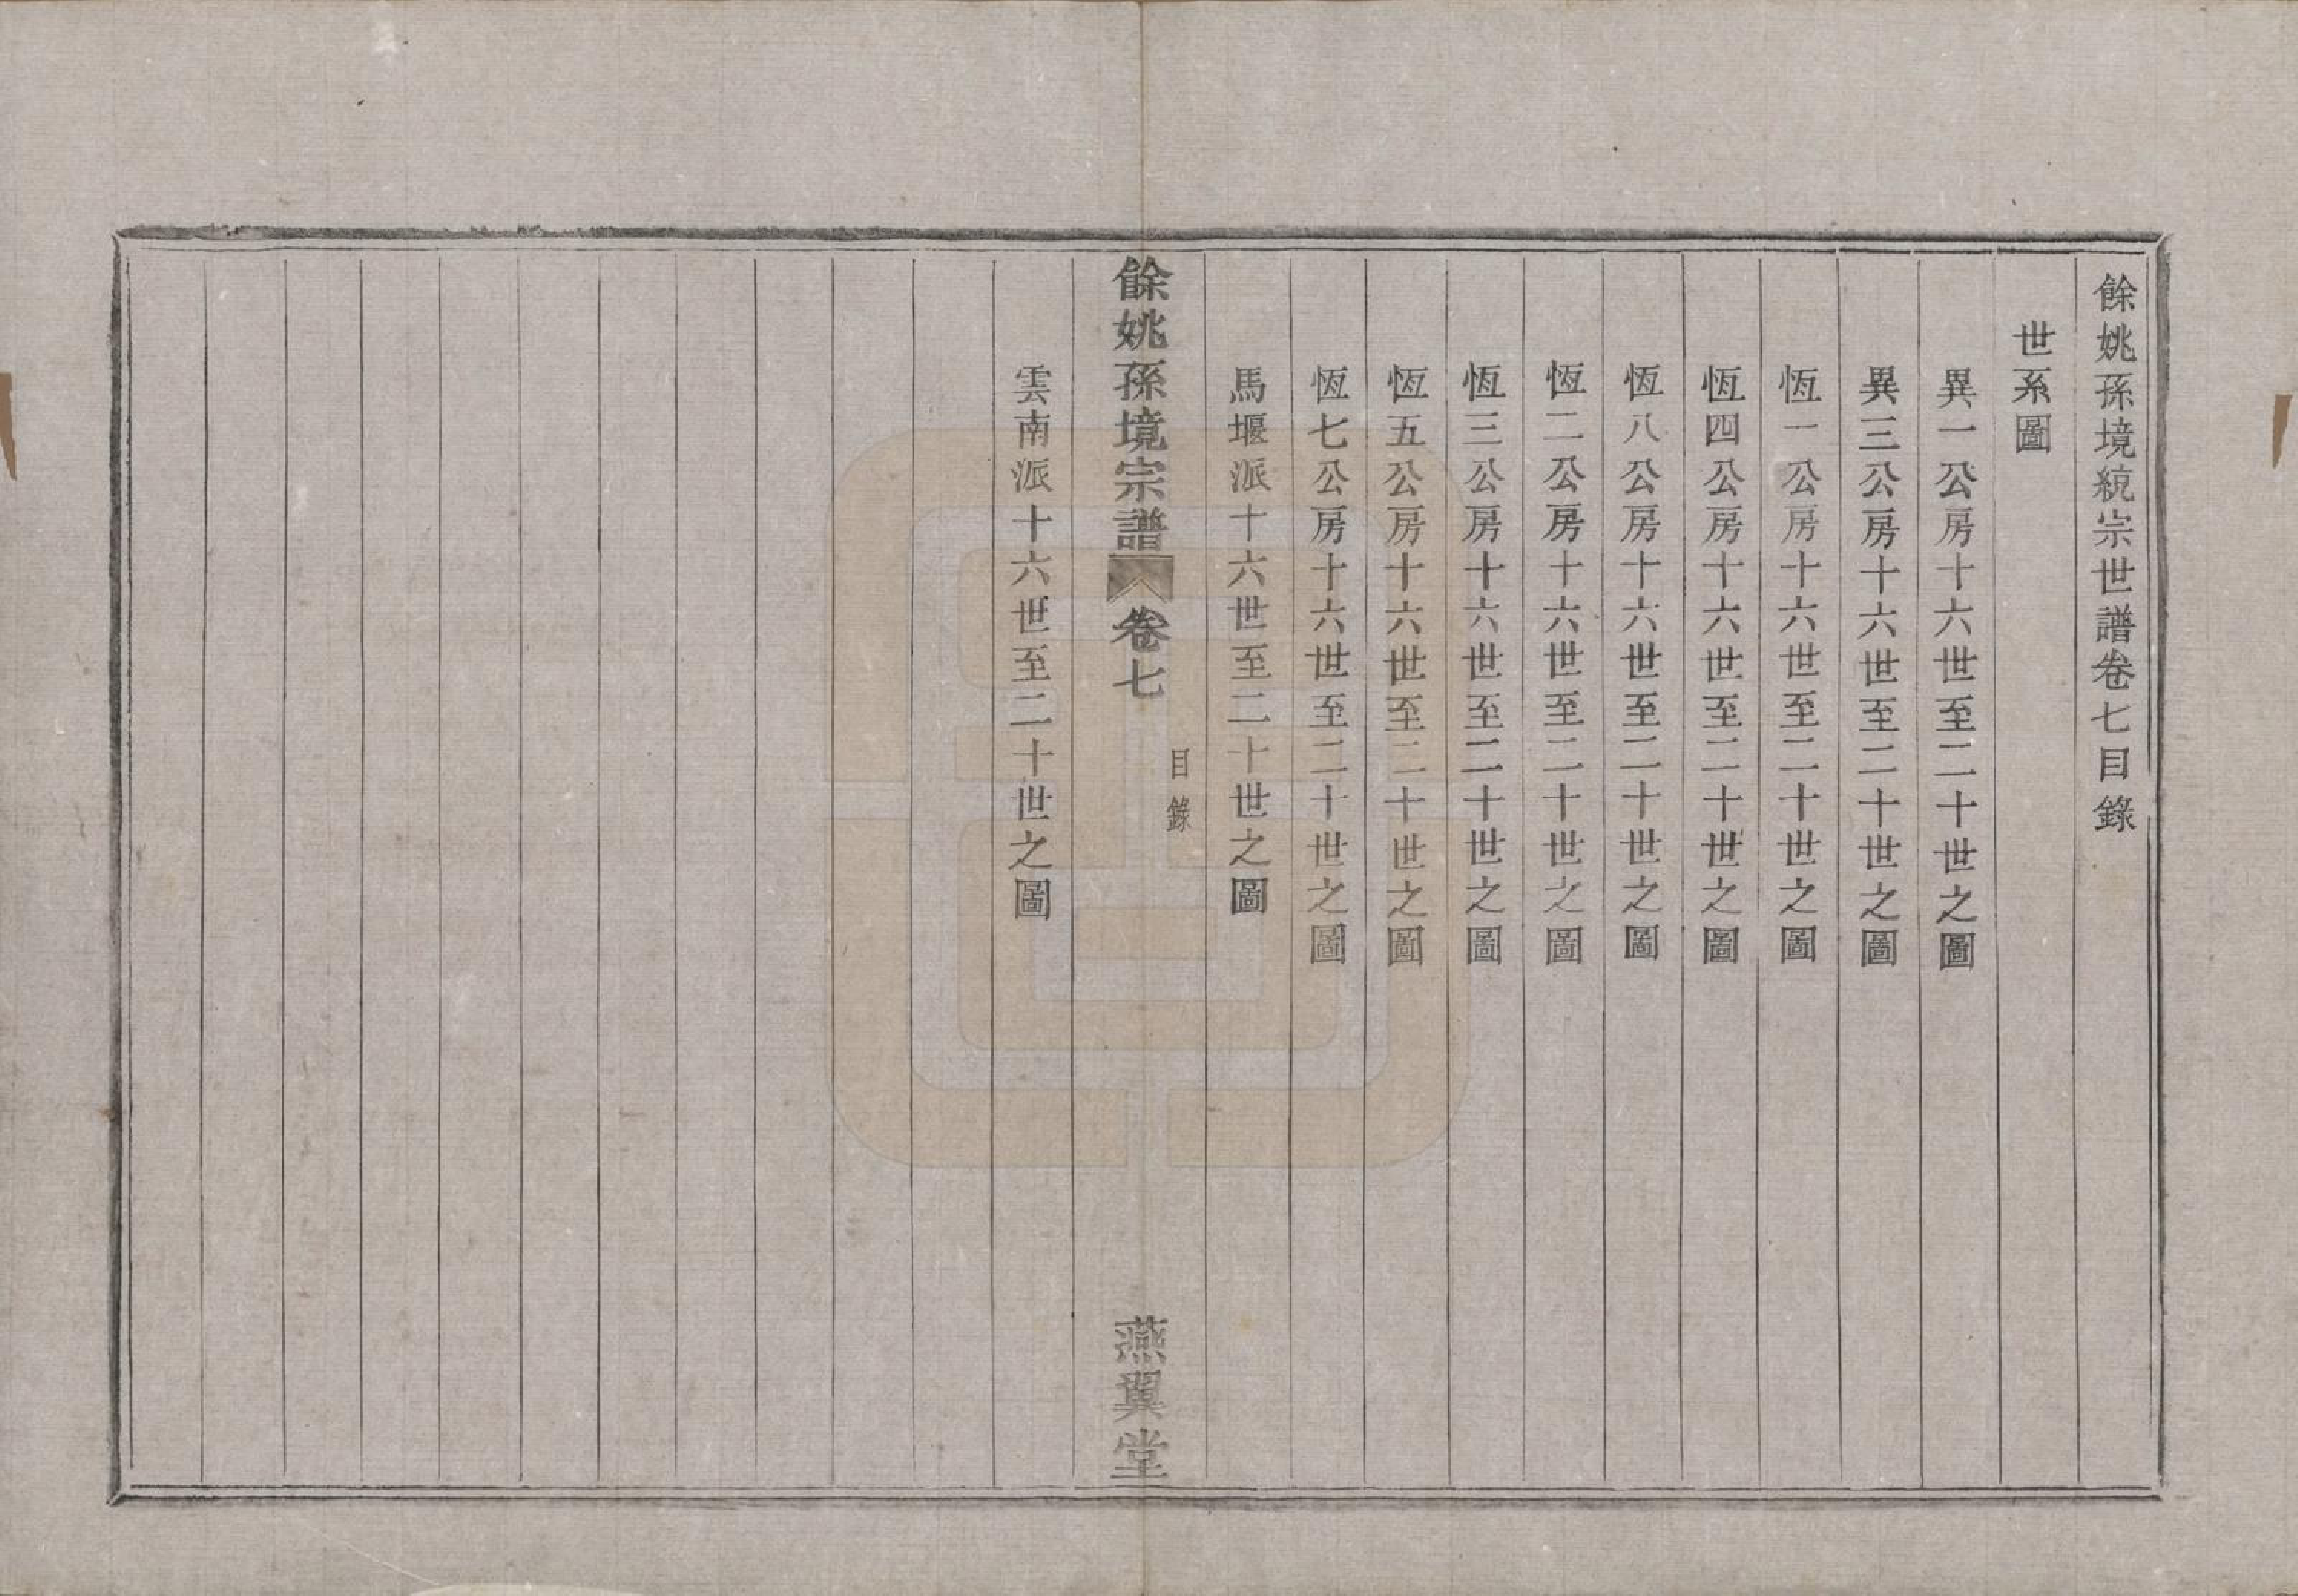 餘姚孫境統宗世譜卷七目錄
世系圖
異一公房十六世至二十世之圖
異三公房十六世至二十世之圖
恆一公房十六世至二十世之圖
恆四公房十六世至二十世之圖
恆八公房十六世至二十世之圖
恆二公房十六世至二十世之圖
恆三公房十六世至二十世之圖
恆五公房十六世至二十世之圖
恆七公房十六世至二十世之圖
馬堰派十六世至二十世之圖
餘姚孫境宗譜 卷七
目錄
燕翼堂
雲南派十六世至二十世之圖